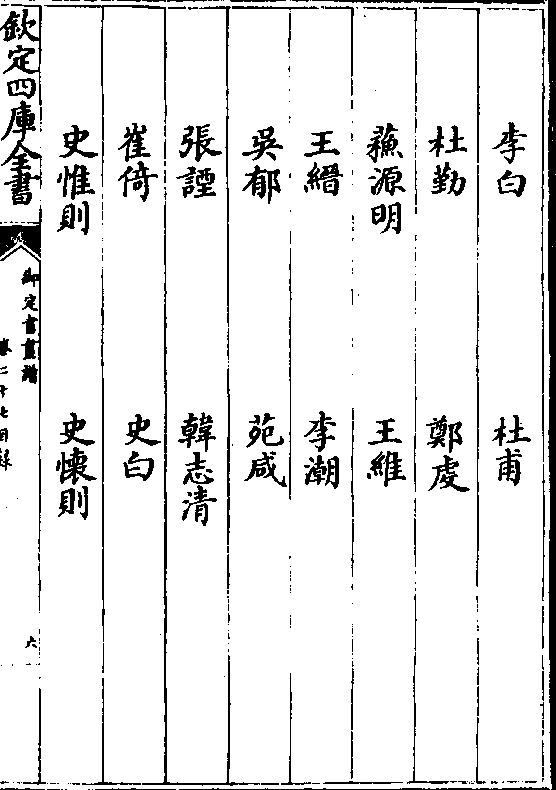 李白　杜甫
杜勤　鄭虔
蘓源明　王維
王縉　李潮
吳郁　苑咸
張諲　韓志清
崔倚　史白
史惟則　史懷則
欽定四庫全書
御定書畫譜
卷二十七目録
六